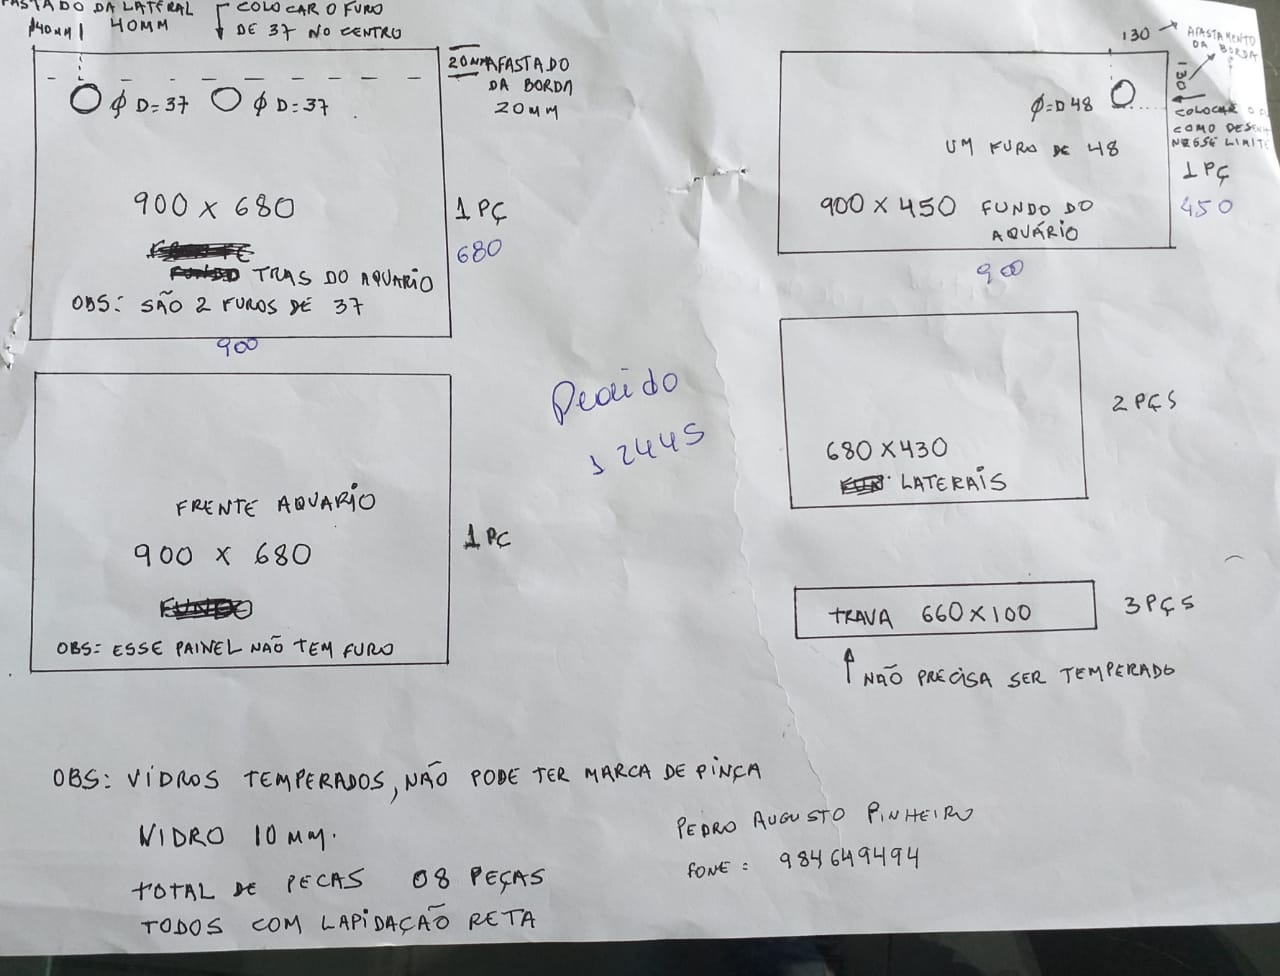 AFASTADO DA LATERAL
40MM
40MM
COLOCAR O FURO
DE 37 NO CENTRO
Ø D=37
Ø D=37
20MM AFASTADO
DA BORDA
20MM
900 X 680
1 PÇ
680
TRAS DO AQUARIO
OBS: SÃO 2 FUROS DE 37
900
130 → AFASTAMENTO
DA BORDA
130
Ø=D 48
COLOCAR O
COMO
NESSE LIMITE
UM FURO DE 48
1 PÇ
900 X 450 FUNDO DO
AQUÁRIO
450
900
Pedido
2445
FRENTE AQUARIO
900 X 680
1 PC
FUNDO
OBS: ESSE PAINEL NÃO TEM FURO
680 X 430
LATERAIS
2 PÇS
TRAVA 660 X 100
3 PÇS
NÃO PRECISA SER TEMPERADO
OBS: VIDROS TEMPERADOS, NÃO PODE TER MARCA DE PINÇA
VIDRO 10 MM.
TOTAL DE PECAS 08 PEÇAS
TODOS COM LAPIDAÇÃO RETA
PEDRO AUGUSTO PINHEIRO
FONE: 984649494